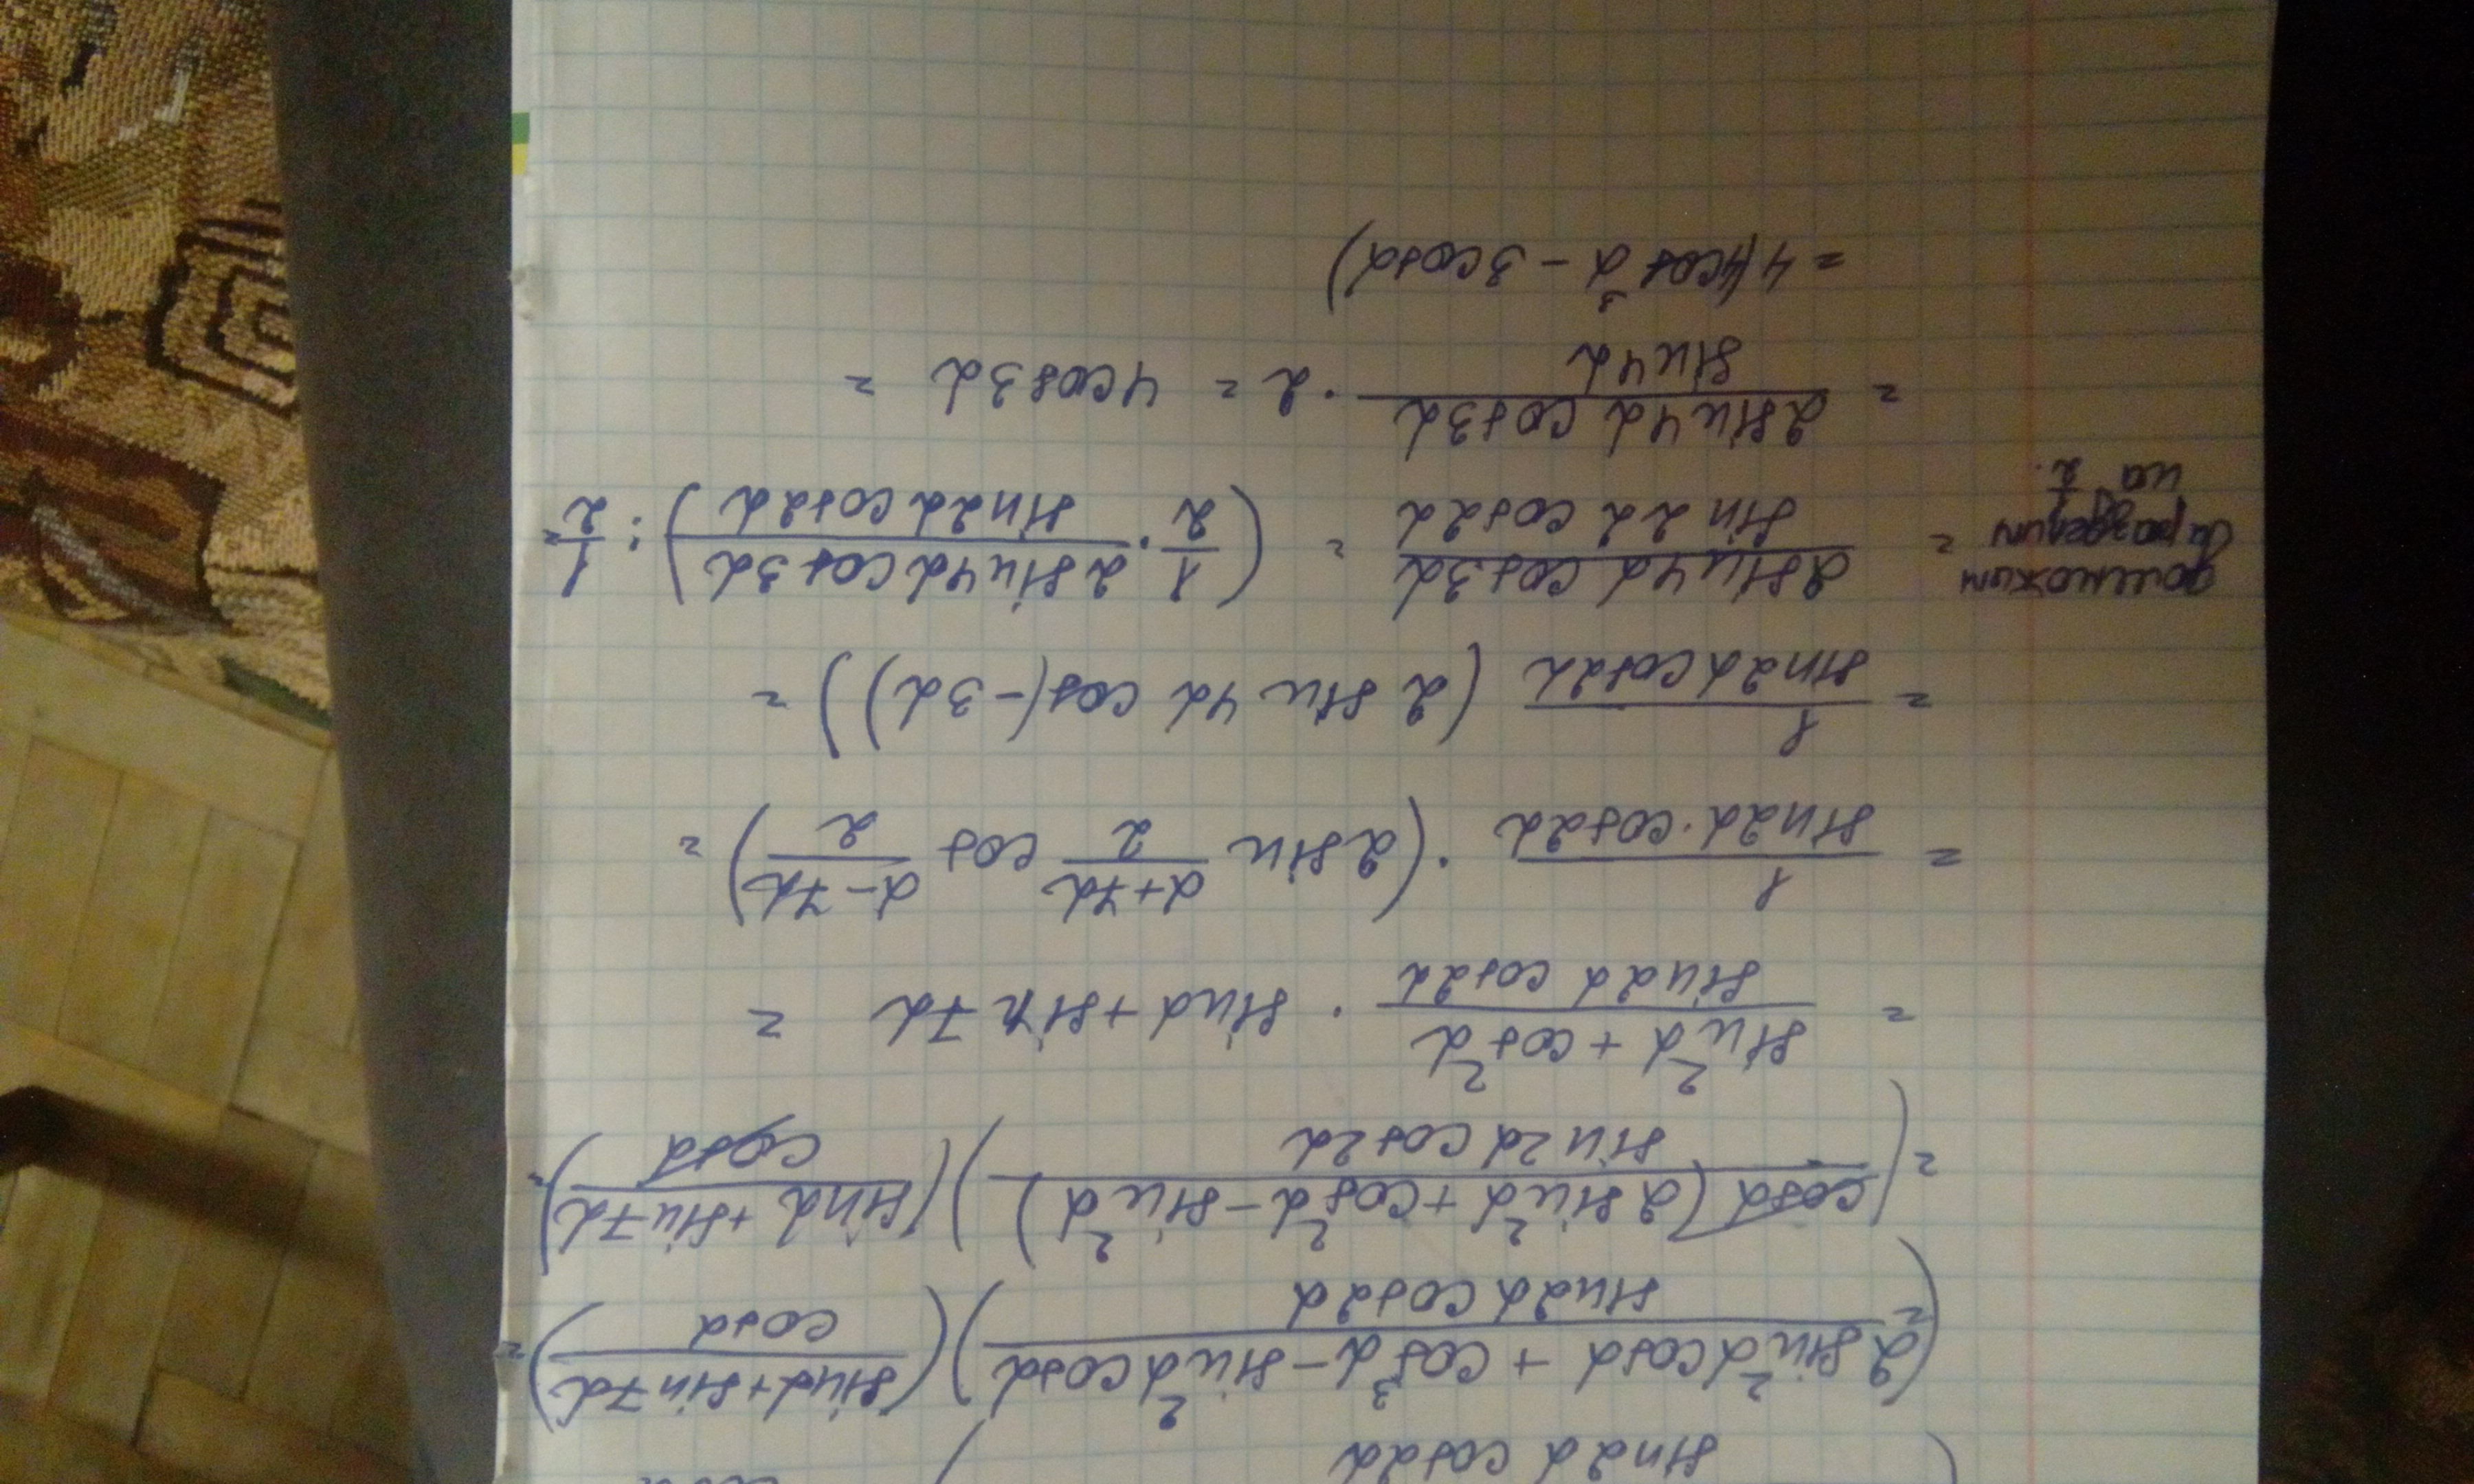 sin2α cos2α ) cosα
= (2sin²αcosα + cos³α − sin²αcosα / sin2α cos2α) (sinα+sin7α / cosα) =
= (cosα(2sin²α+cos²α−sin²α) / sin2α cos2α) (sinα+sin7α / cosα) =
= sin²α + cos²α / sin2α cos2α · sinα+sin7α =
= 1 / sin2α·cos2α · (2sin α+7α / 2 cos α−7α / 2) =
= 1 / sin2α cos2α (2 sin 4α cos(−3α)) =
домножим и разделим на 1/2. = 2sin4α cos3α / sin2α cos2α = (1/2 · 2sin4α cos3α / sin2α cos2α) : 1/2 =
= 2sin4α cos3α / sin4α · 2 = 4cos3α =
= 4(4cos³α − 3cosα)